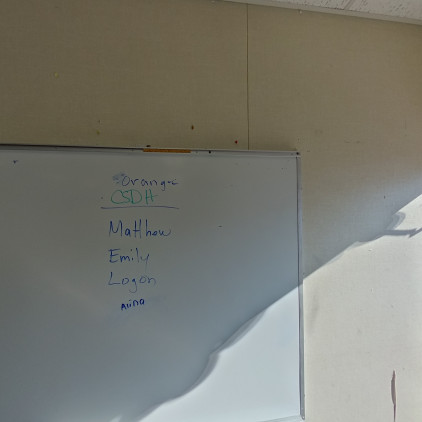 Orange
CSDH
Matthew
Emily
Logan
Alina